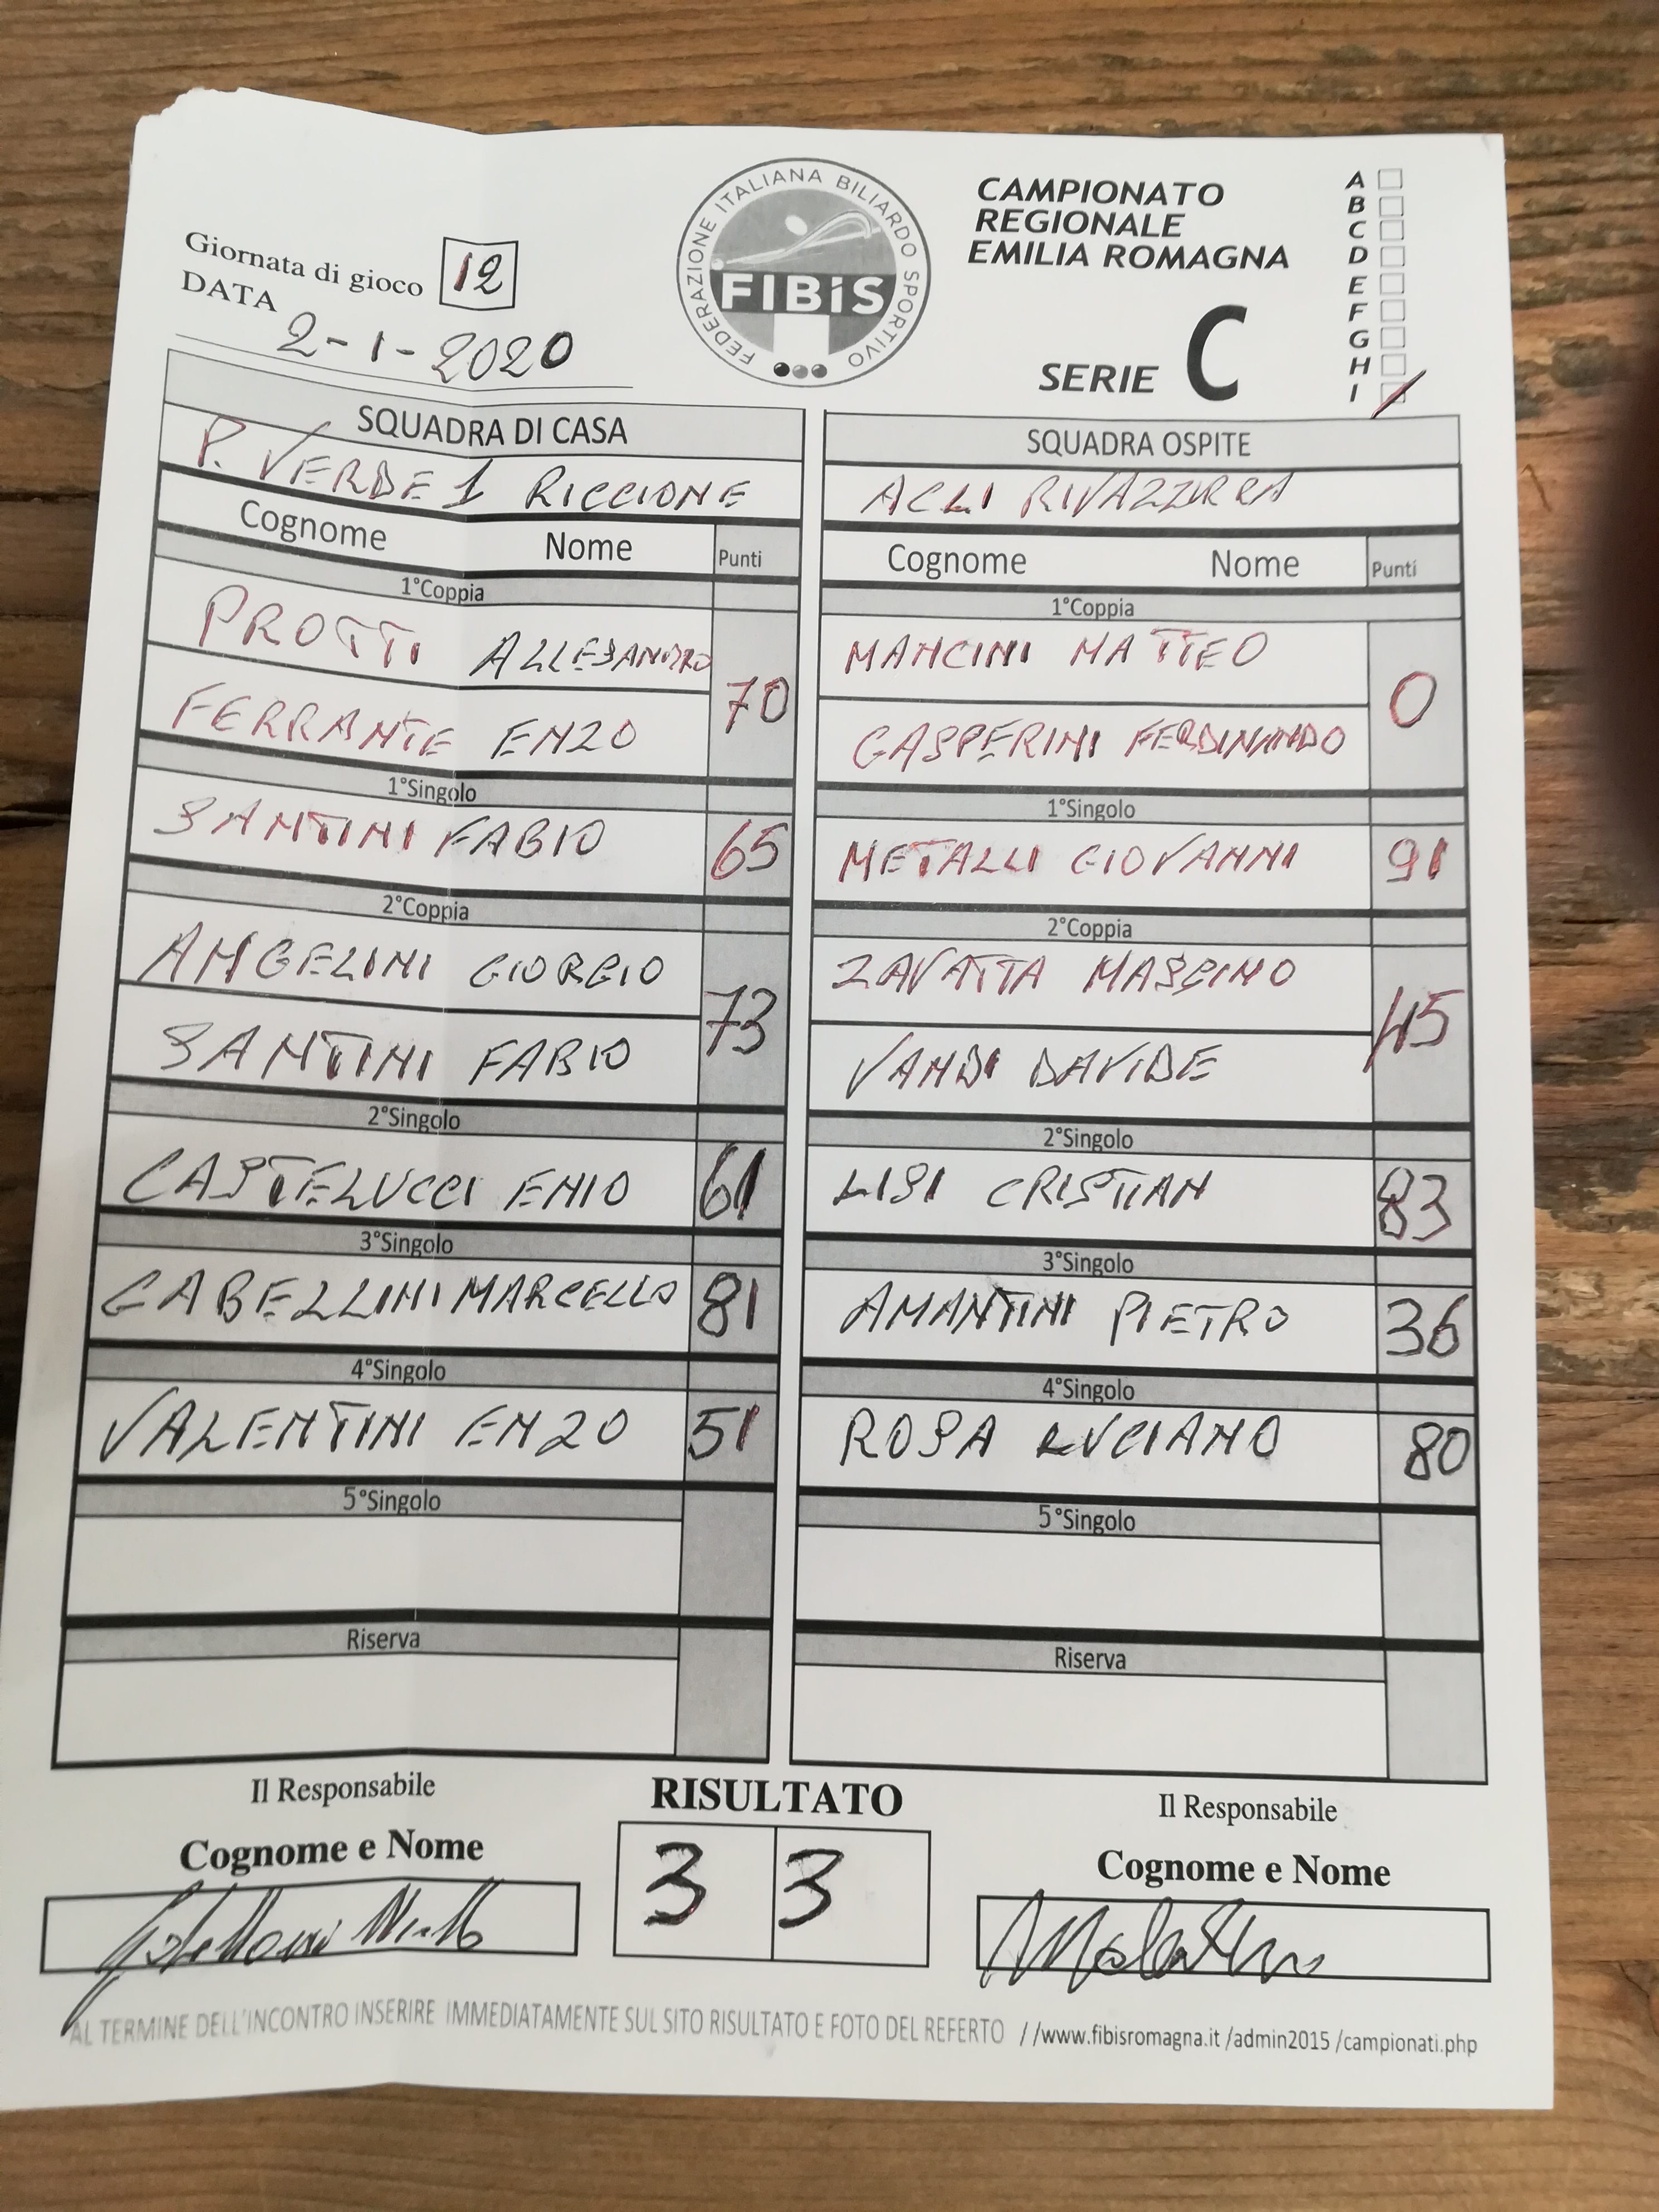 Giornata di gioco 12
DATA 2-1-2020
FEDERAZIONE ITALIANA BILIARDO SPORTIVO
FIBiS
CAMPIONATO
REGIONALE
EMILIA ROMAGNA
SERIE C
A
B
C
D
E
F
G
H
I
SQUADRA DI CASA
P. VERDE 1 RICCIONE
Cognome Nome Punti
1°Coppia
PROTTI ALLESANDRO
FERRANTE ENZO
70
1°Singolo
SANTINI FABIO 65
2°Coppia
ANGELINI GIORGIO
SANTINI FABIO
73
2°Singolo
CASTELUCCI ENIO 61
3°Singolo
GABELLINI MARCELLO 81
4°Singolo
VALENTINI ENZO 51
5°Singolo
Riserva
SQUADRA OSPITE
ACLI RIVAZZURRA
Cognome Nome Punti
1°Coppia
MANCINI MATTEO
GASPERINI FERDINANDO
0
1°Singolo
METALLI GIOVANNI 91
2°Coppia
ZAVATTA MASSIMO
VANDI DAVIDE
45
2°Singolo
LISI CRISTIAN 83
3°Singolo
AMANTINI PIETRO 36
4°Singolo
ROSA LUCIANO 80
5°Singolo
Riserva
Il Responsabile
Cognome e Nome
RISULTATO
3 3
Il Responsabile
Cognome e Nome
AL TERMINE DELL'INCONTRO INSERIRE IMMEDIATAMENTE SUL SITO RISULTATO E FOTO DEL REFERTO //www.fibisromagna.it /admin2015 /campionati.php